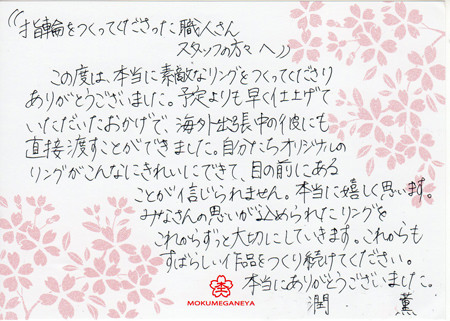 《指輪をつくってくださった職人さん
スタッフの方々へ》
この度は、本当に素敵なリングをつくってくださり
ありがとうございました。予定よりも早く仕上げて
いただいたおかげで、海外出張中の彼にも
直接渡すことができました。自分たちオリジナルの
リングがこんなにきれいにできて、目の前にある
ことが信じられません。本当に嬉しく思います。
みなさんの思いが込められたリングを
これからずっと大切にしていきます。これからも
すばらしい作品をつくり続けてください。
本当にありがとうございました。
潤 薫
MOKUMEGANEYA